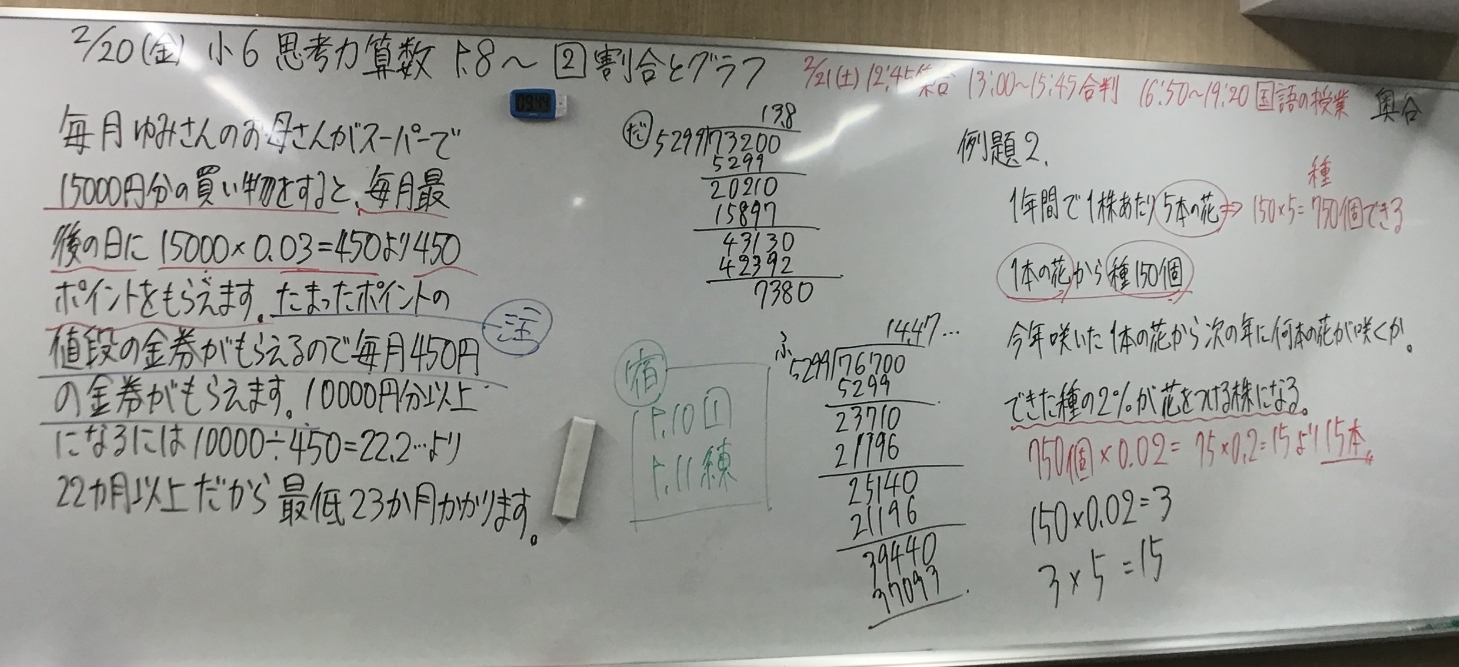 2/20(金) 小6 思考力算数 P.8〜 2 割合とグラフ
2/21(土) 12:45集合 13:00〜15:45合判 16:50〜19:20 国語の授業
毎月ゆみさんのお母さんがスーパーで
15000円分の買い物をすると、毎月最
後の日に 15000×0.03=450より450
ポイントをもらえます。たまったポイントの
値段の金券がもらえるので毎月450円
の金券がもらえます。10000円分以上
になるには10000÷450=22.2…より
22カ月以上だから最低23か月かかります。
だ
138
5299)73200
5299
20210
15897
43130
42392
7380
宿
P.10 1
P.11 練
ふ
14.47…
5299)76700
5299
23710
21196
25140
21196
39440
37093
例題2.
種
1年間で1株あたり5本の花⇒150×5=750個できる
1本の花から種150個
今年咲いた1本の花から次の年に何本の花が咲くか。
できた種の2%が花をつける株になる。
750個×0.02=75×0.2=15より15本
150×0.02=3
3×5=15